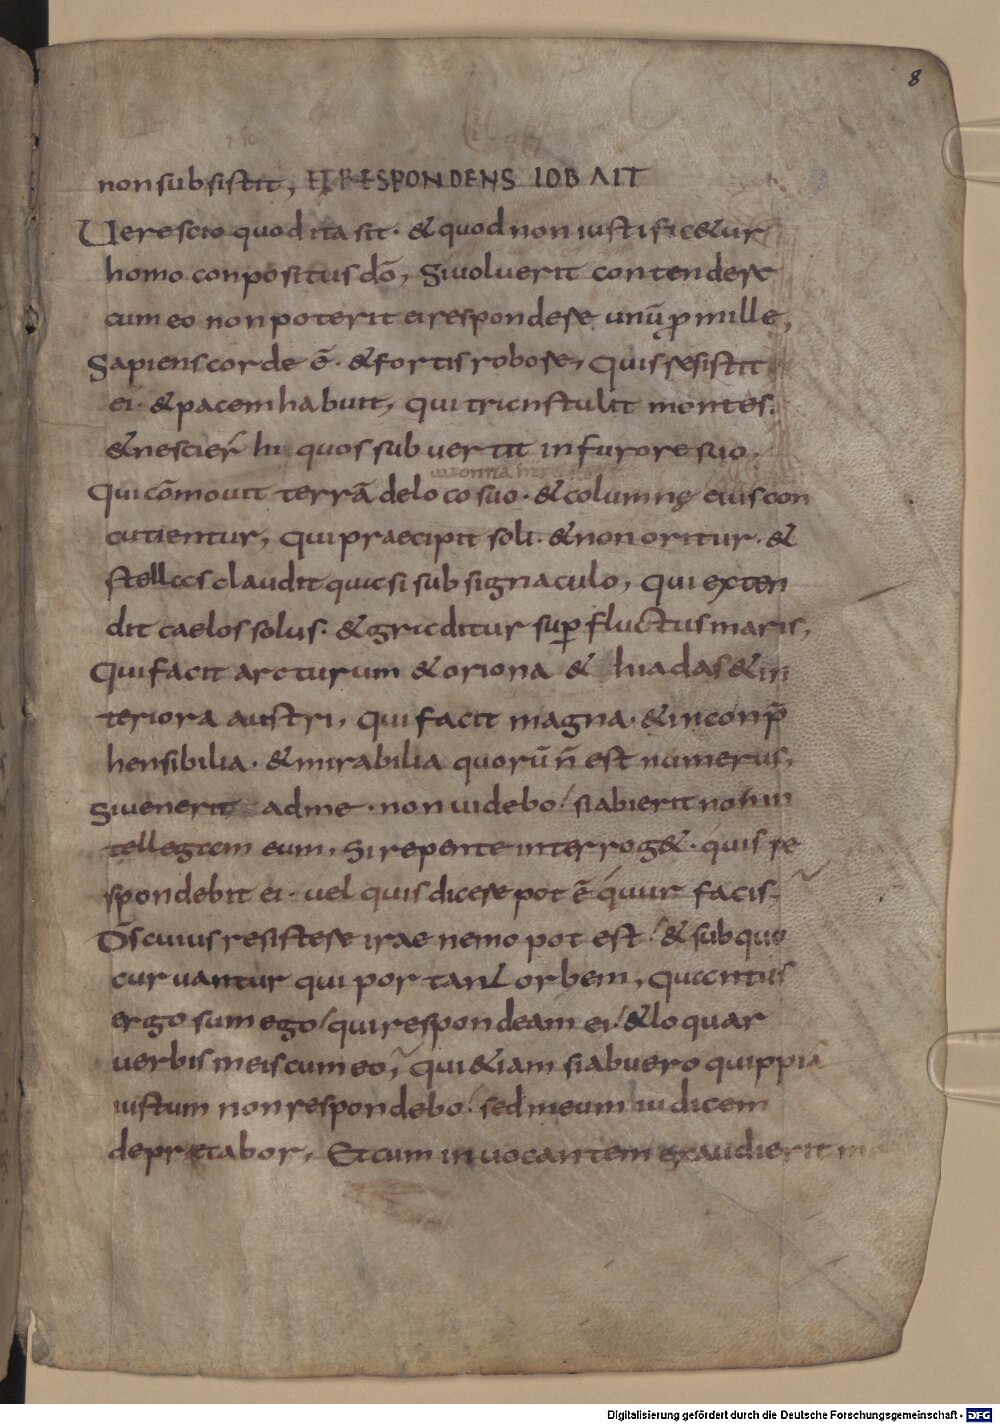 8
non subsistit, ET RESPONDENS IOB AIT
Uere scio quod ita sit · & quod non iustific&ur
homo conpositus dō, Si uoluerit contendere
cum eo non poterit ei respondere unū p̄ mille,
Sapiens corde ē · & fortis robore, Quis resistit
ei · & pacem habuit, qui transtulit montes,
& nescier̄ hi quos subuertit in furore suo,
Qui cōmouit terrā de loco suo · & columnę eius con
cutientur, qui praecipit soli · & non oritur · &
stellas claudit quasi sub signaculo, qui exten
dit caelos solus · & graditur sup̄ fluctus maris,
Qui facit arcturum & oriona & hiadas & in
teriora austri, qui facit magna · & inconp̄
hensibilia · & mirabilia quorū n̄ est numerus,
Si uenerit ad me · non uidebo / si abierit non in
tellegam eum, Si repente interrog& · quis re
spondebit ei · uel quis dicere pot ē quur facis
D̄s cuius resistere irae nemo pot est / & sub quo
curuantur qui portant orbem, quantus
ergo sum ego / qui respondeam ei / & loquar
uerbis meis cum eo, qui &iam si abuero quippiā
iustum non respondebo / sed meum iudicem
depraetabor, Et cum inuocantem exaudierit
Digitalisierung gefördert durch die Deutsche Forschungsgemeinschaft - DFG